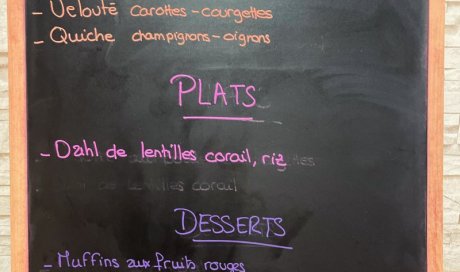 - Velouté carottes - courgettes
- Quiche champignons - oignons
PLATS
- Dahl de lentilles corail, riz
DESSERTS
- Muffins aux fruits rouges